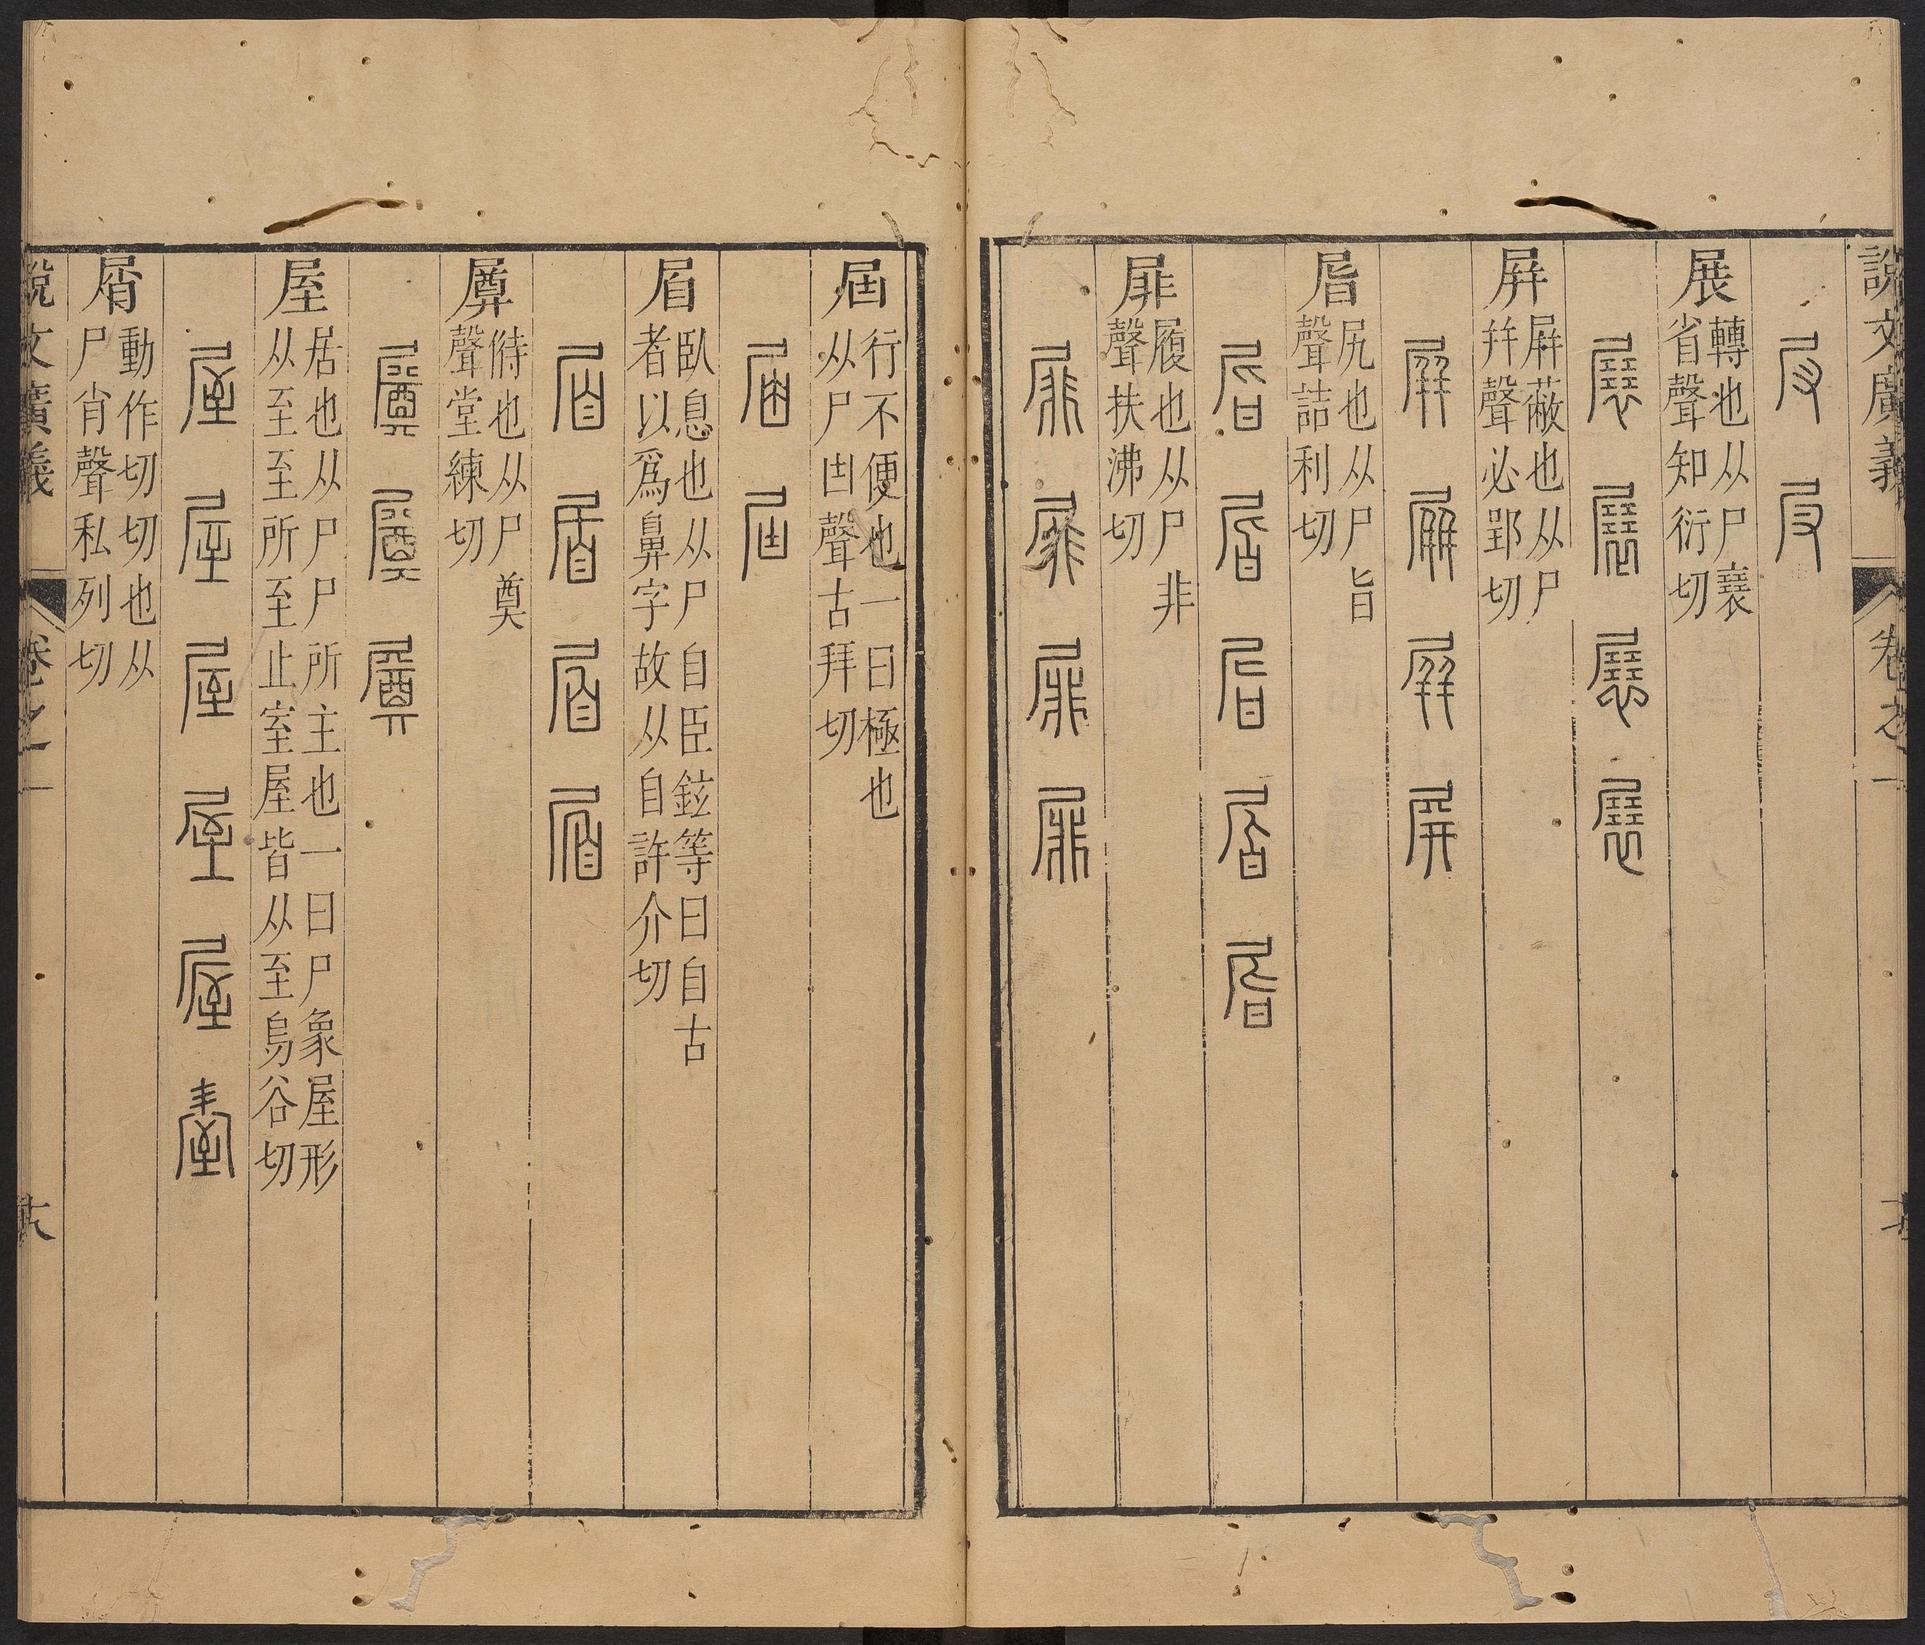 說文廣義
卷之一
𡰫 𡰫
展
轉也从尸㠭
省聲知衍切
展 展 展 展
屛
屛蔽也从尸
幷聲必郢切
屛 屛 屛 屛
㞓
尻也从尸旨
聲詰利切
㞓 㞓 㞓 㞓 㞓
屝
履也从尸非
聲扶沸切
屝 屝 屝 屝
屆
行不便也一曰極也
从尸凷聲古拜切
屆 屆
眉
臥息也从尸自臣鉉等曰自古
者以爲鼻字故从自許介切
𡱁
偫也从尸奠
聲堂練切
屋
居也从尸尸所主也一曰尸象屋形
从至至所至止室屋皆从至烏谷切
屋 屋 屋 屋 屋
屑
動作切切也从
尸肖聲私列切
說文廣義
卷之一
六